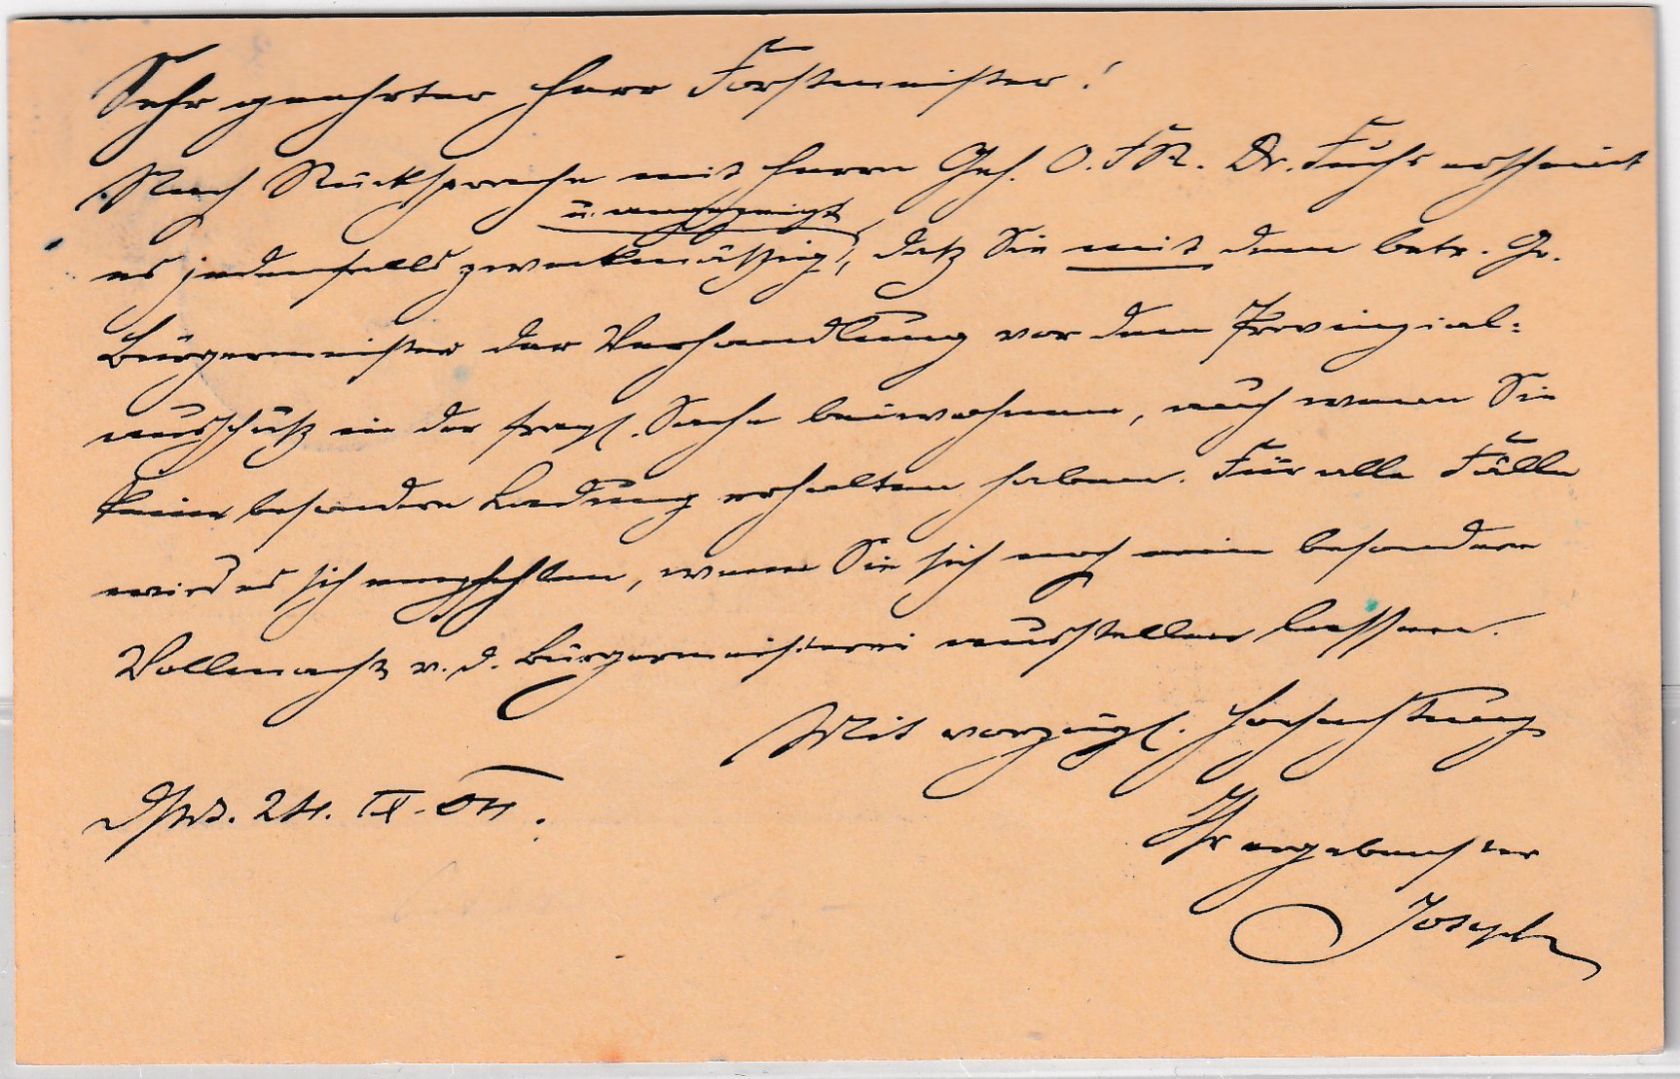 Sehr geehrter Herr Forstmeister!
Nach Rücksprache mit Herrn Geh. O. F. R. Dr. Fuchs erscheint
u. angezeigt
es jedenfalls zweckmäßig, daß Sie mit dem betr. Gr.
Bürgermeister der Verhandlung vor dem Provinzial-
ausschuß in der fragl. Sache beiwohnen, auch wenn Sie
keine besondere Ladung erhalten haben. Für alle Fälle
wird es sich empfehlen, wenn Sie sich noch eine besondere
Vollmacht v. d. Bürgermeisterei ausstellen lassen.
Mit vorzügl. Hochachtung
Dstd. 24. IX. 04.
Ihr ergebenster
Joseph